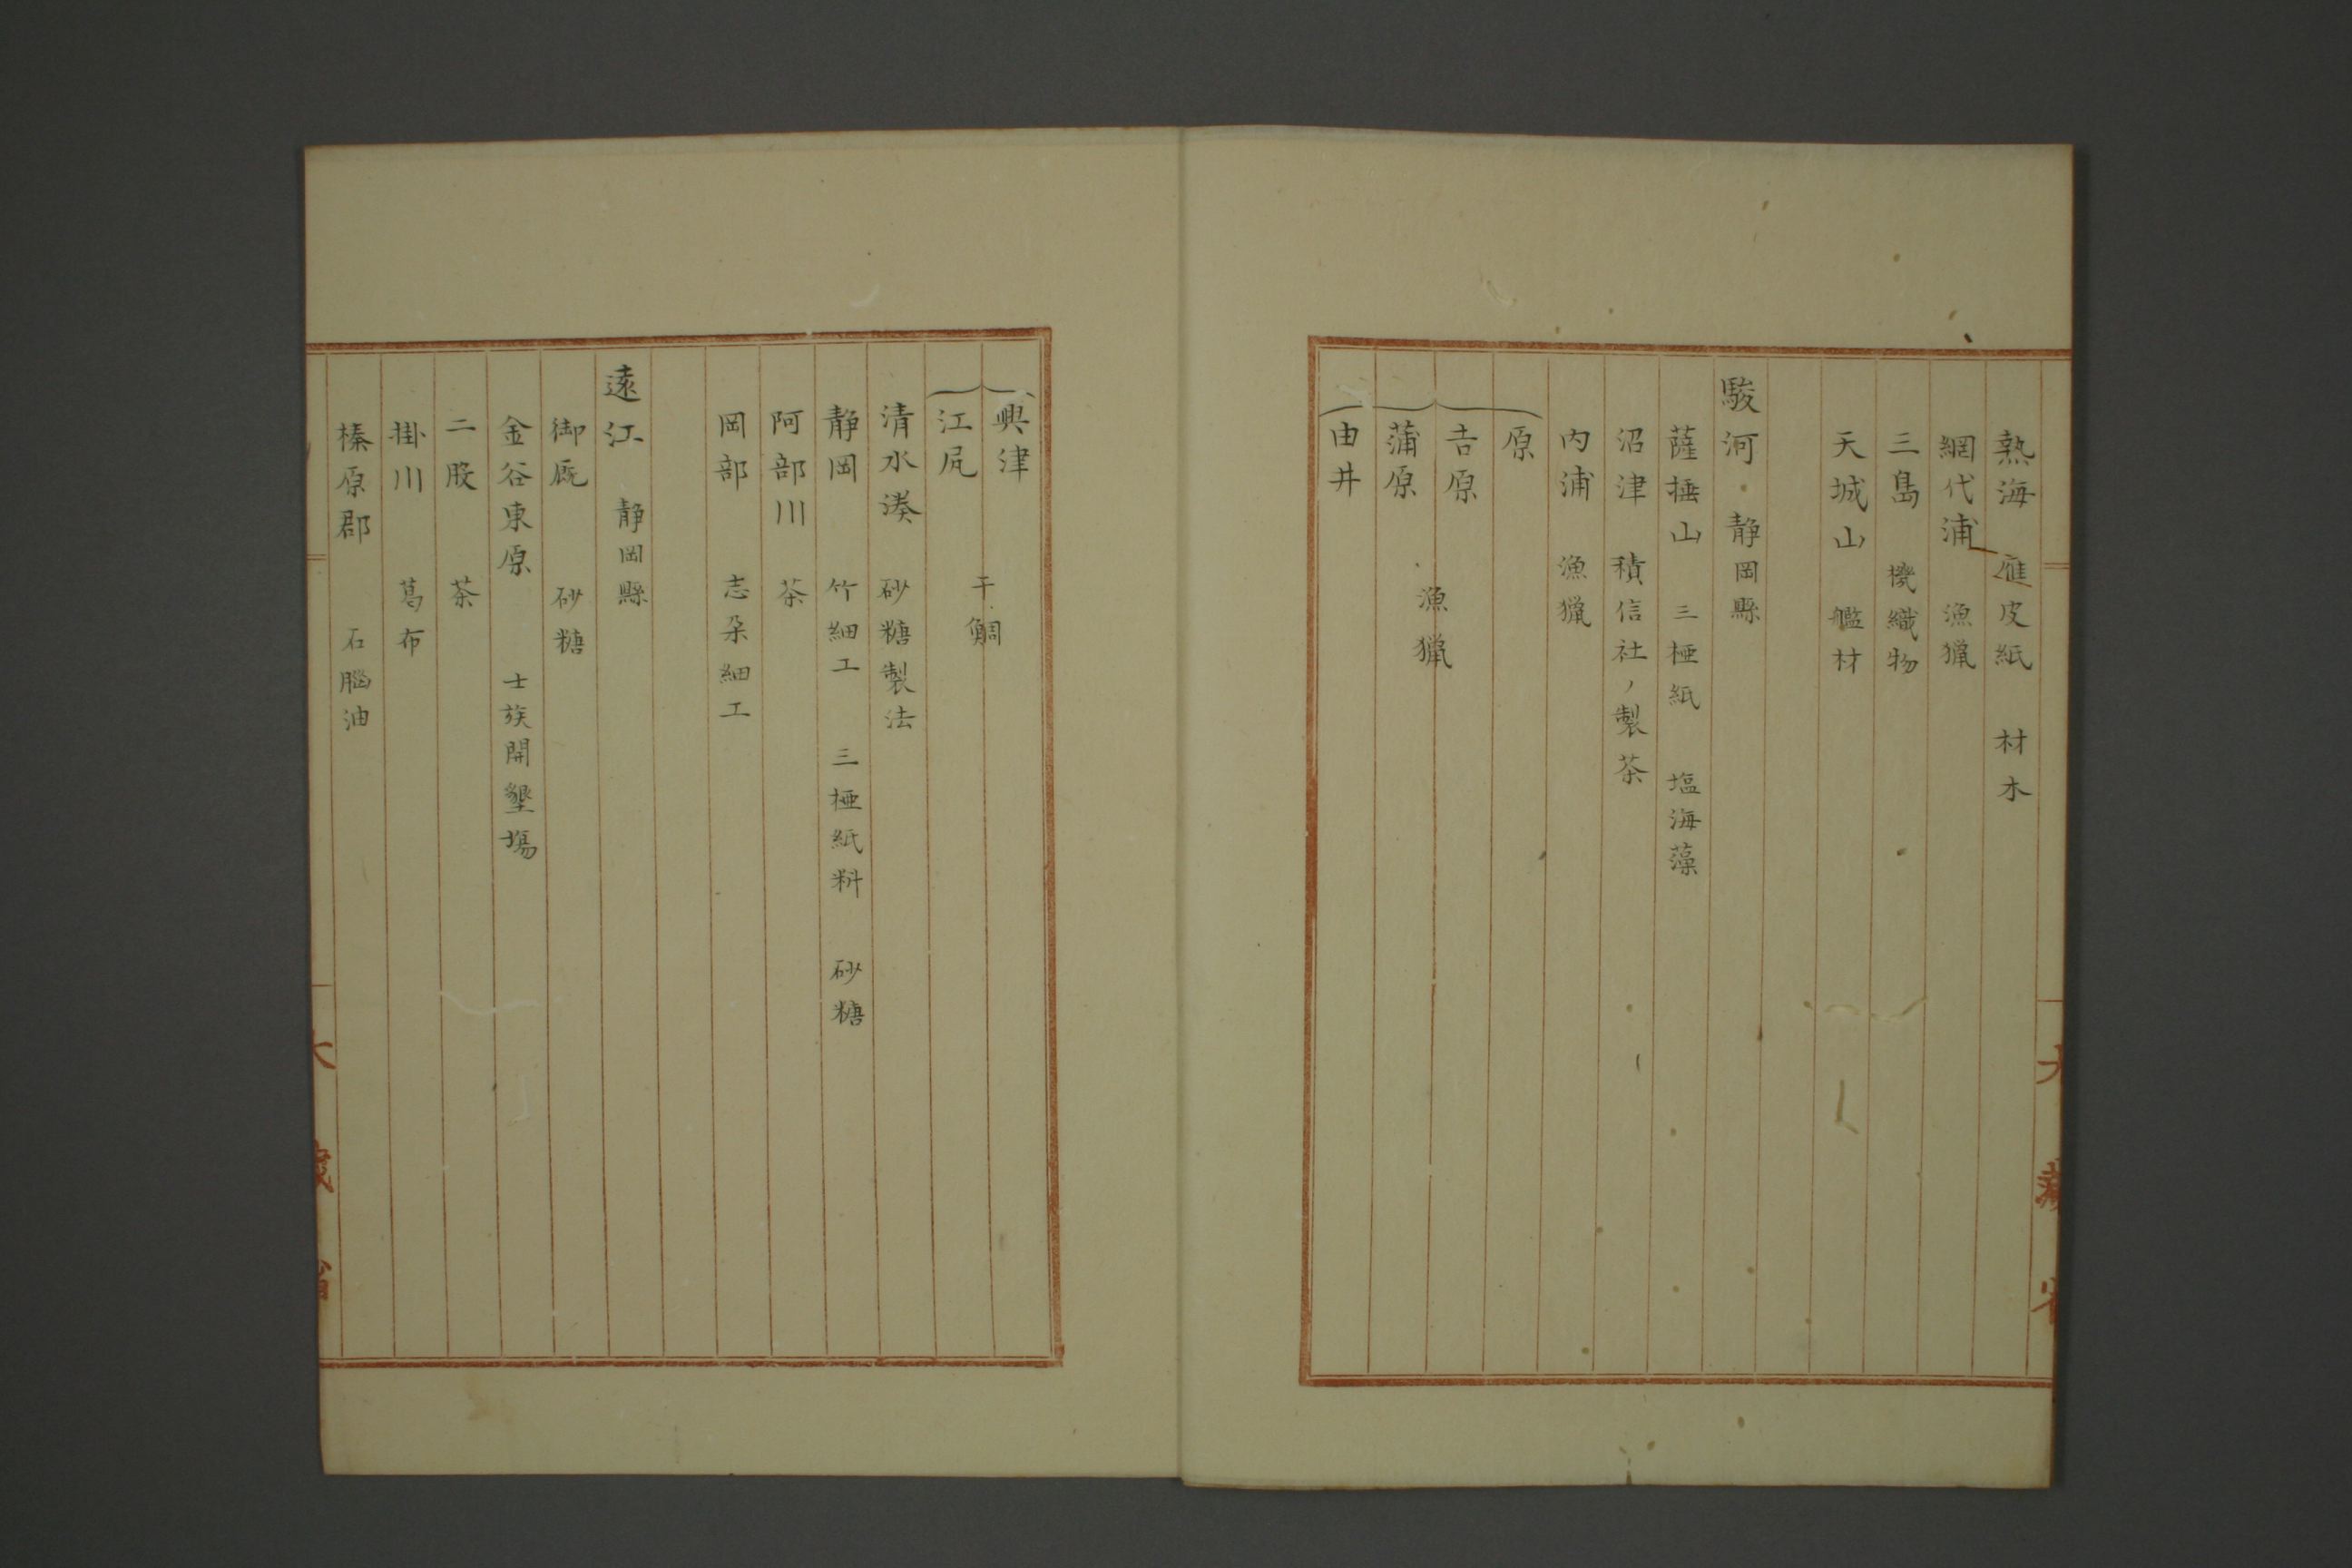 熱海 雁皮紙 材木
網代浦 漁獵
三島 機織物
天城山 艦材
駿河 静岡縣
薩埵山 三椏紙 塩海藻
沼津 積信社ノ製茶
内浦 漁獵
原
吉原
漁獵
蒲原
由井
大藏省
興津
干鯛
江尻
清水湊 砂糖製法
静岡 竹細工 三椏紙料 砂糖
阿部川 茶
岡部 志朶細工
遠江 静岡縣
御厩 砂糖
金谷東原 士族開墾場
二股 茶
掛川 葛布
榛原郡 石腦油
大藏省